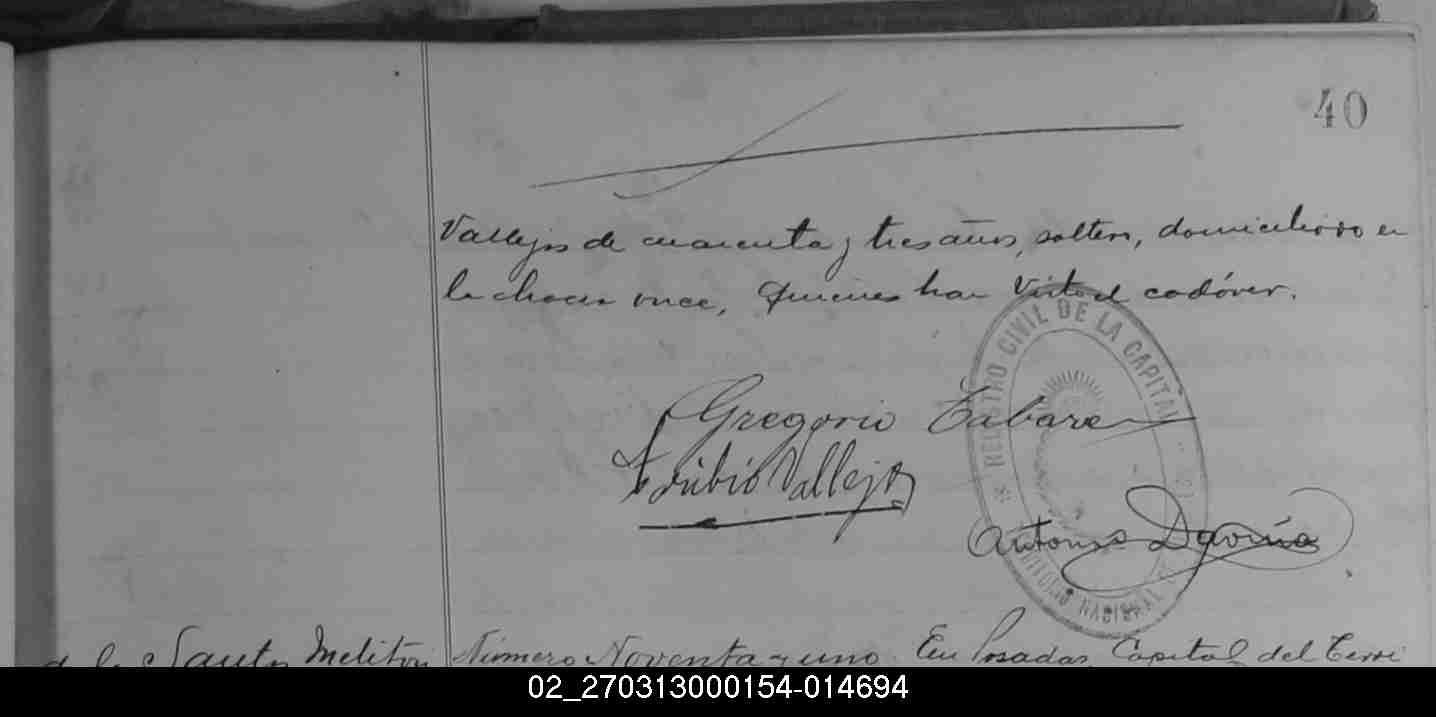 40
Vallejos de cuarenta y tres años, soltero, domiciliado en
la chacra once, quienes han visto el cadáver.
REGISTRO CIVIL DE LA CAPITAL
Gregorio Tabarez
Toribio Vallejos
Antonio
NACIONAL
Santos Meliton Número Noventa y uno. En Posadas Capital del Terri
02_270313000154-014694